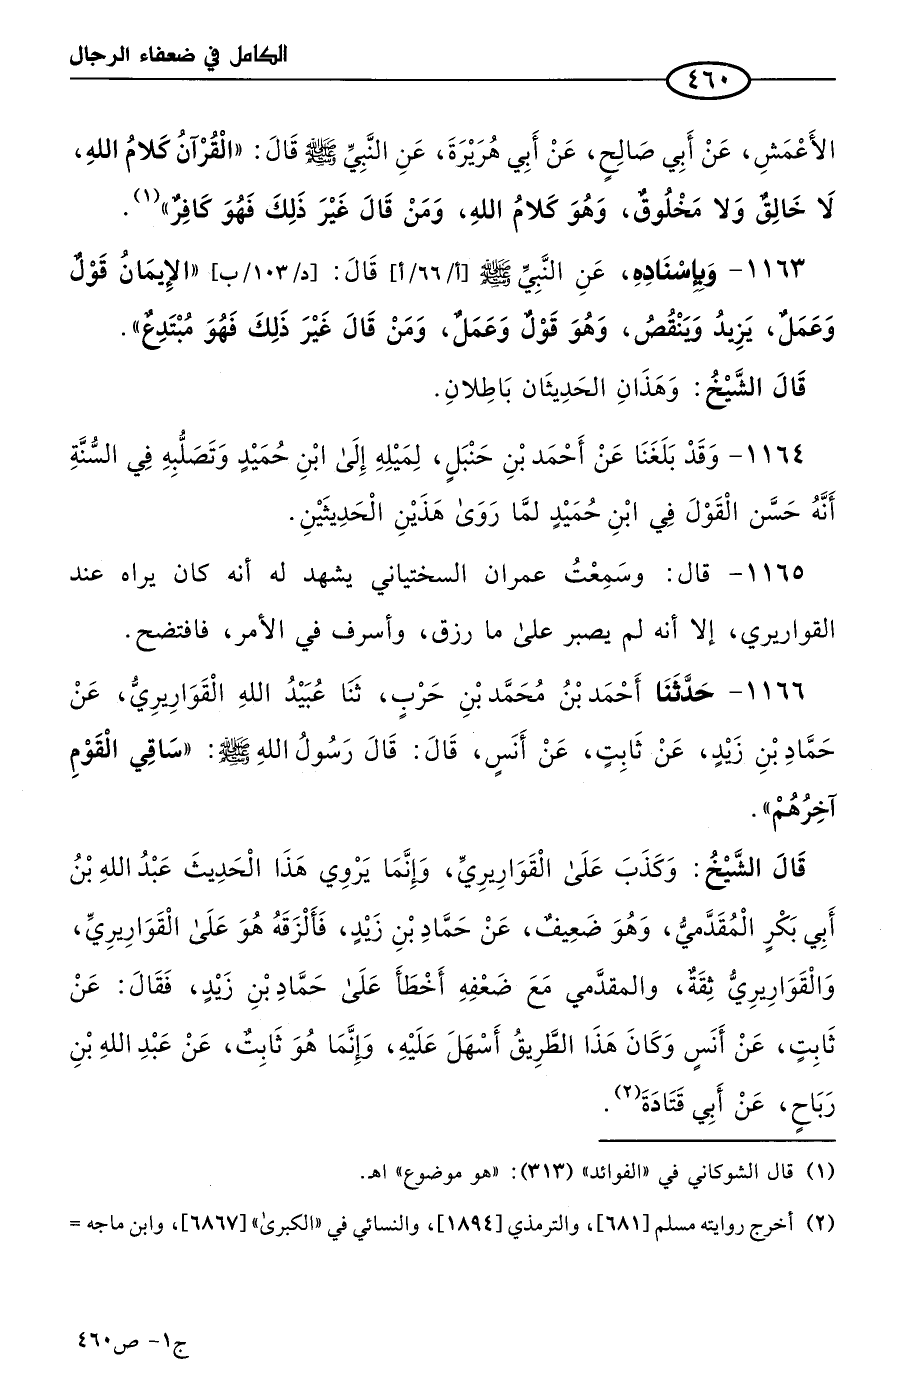 الكامل في ضعفاء الرجال
٤٦٠
الأَعْمَشِ، عَنْ أَبِي صَالِحٍ، عَنْ أَبِي هُرَيْرَةَ، عَنِ النَّبِيِّ ﷺ قَالَ: «الْقُرْآنُ كَلامُ اللهِ،
لَا خَالِقٌ وَلا مَخْلُوقٌ، وَهُوَ كَلامُ اللهِ، وَمَنْ قَالَ غَيْرَ ذَلِكَ فَهُوَ كَافِرٌ»(١).
١١٦٣- وَبِإِسْنَادِهِ، عَنِ النَّبِيِّ ﷺ [أ/٦٦/أ] قَالَ: [د/١٠٣/ب] «الإِيمَانُ قَوْلٌ
وَعَمَلٌ، يَزِيدُ وَيَنْقُصُ، وَهُوَ قَوْلٌ وَعَمَلٌ، وَمَنْ قَالَ غَيْرَ ذَلِكَ فَهُوَ مُبْتَدِعٌ».
قَالَ الشَّيْخُ: وَهَذَانِ الحَدِيثَان بَاطِلانِ.
١١٦٤- وَقَدْ بَلَغَنَا عَنْ أَحْمَد بْنِ حَنْبَلٍ، لِمَيْلِهِ إِلَىٰ ابْنِ حُمَيْدٍ وَتَصَلُّبِهِ فِي السُّنَّةِ
أَنَّهُ حَسَّن الْقَوْلَ فِي ابْنِ حُمَيْدٍ لمَّا رَوَىٰ هَذَيْنِ الْحَدِيثَيْنِ.
١١٦٥- قال: وسَمِعْتُ عمران السختياني يشهد له أنه كان يراه عند
القواريري، إلا أنه لم يصبر علىٰ ما رزق، وأسرف في الأمر، فافتضح.
١١٦٦- حَدَّثَنَا أَحْمَد بْنُ مُحَمَّد بْنِ حَرْبٍ، ثَنَا عُبَيْدُ اللهِ الْقَوَارِيرِيُّ، عَنْ
حَمَّادِ بْنِ زَيْدٍ، عَنْ ثَابِتٍ، عَنْ أَنَسٍ، قَالَ: قَالَ رَسُولُ اللهِ ﷺ: «سَاقِي الْقَوْمِ
آخِرُهُمْ».
قَالَ الشَّيْخُ: وَكَذَبَ عَلَىٰ الْقَوَارِيرِيِّ، وَإِنَّمَا يَرْوِي هَذَا الْحَدِيثَ عَبْدُ اللهِ بْنُ
أَبِي بَكْرٍ الْمُقَدَّمِيُّ، وَهُوَ ضَعِيفٌ، عَنْ حَمَّادِ بْنِ زَيْدٍ، فَأَلْزَقَهُ هُوَ عَلَىٰ الْقَوَارِيرِيِّ،
وَالْقَوَارِيرِيُّ ثِقَةٌ، والمقدَّمي مَعَ ضَعْفِهِ أَخْطَأَ عَلَىٰ حَمَّادِ بْنِ زَيْدٍ، فَقَالَ: عَنْ
ثَابِتٍ، عَنْ أَنَسٍ وَكَانَ هَذَا الطَّرِيقُ أَسْهَلَ عَلَيْهِ، وَإِنَّمَا هُوَ ثَابِتٌ، عَنْ عَبْدِ اللهِ بْنِ
رَبَاحٍ، عَنْ أَبِي قَتَادَةَ(٢).
(١) قال الشوكاني في «الفوائد» (٣١٣): «هو موضوع» اهـ.
(٢) أخرج روايته مسلم [٦٨١]، والترمذي [١٨٩٤]، والنسائي في «الكبرىٰ» [٦٨٦٧]، وابن ماجه =
ج١- ص٤٦٠